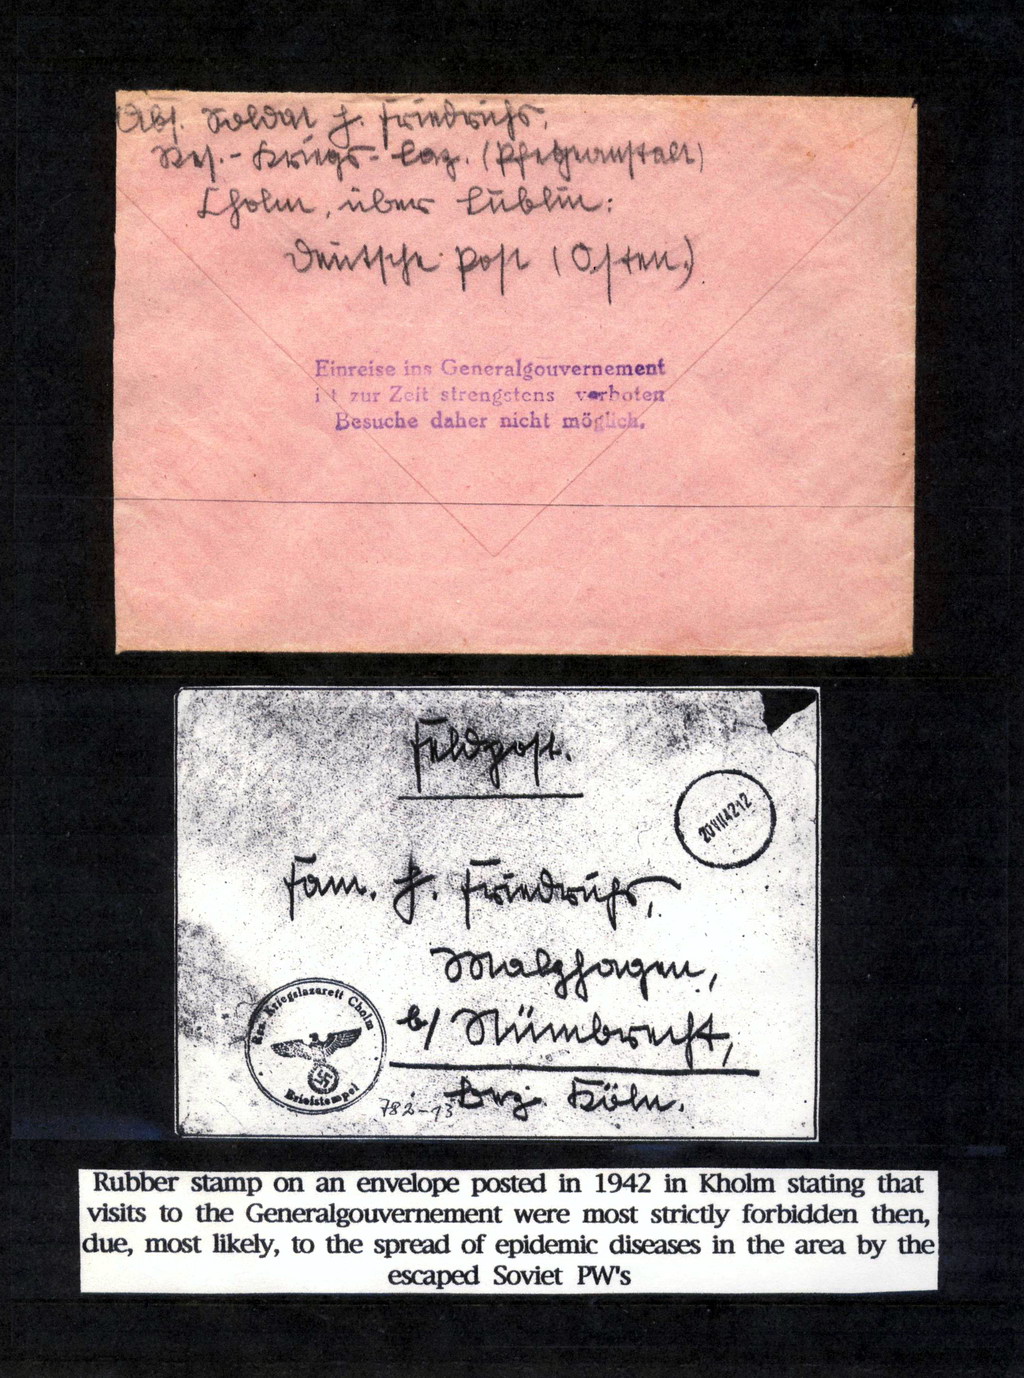 Abs. Soldat H. Friedrichs,
Res.-Kriegs-Laz. (Pflegeanstalt)
Cholm, über Lublin:
Deutsche Post (Osten.)
Einreise ins Generalgouvernement
ist zur Zeit strengstens verboten
Besuche daher nicht möglich.
Feldpost.
20 VII 42 12
Fam. H. Friedrichs,
Malzhagen,
b/ Nümbrecht,
Bez. Köln.
Res. Kriegslazarett Cholm
Briefstempel
782-13
Rubber stamp on an envelope posted in 1942 in Kholm stating that
visits to the Generalgouvernement were most strictly forbidden then,
due, most likely, to the spread of epidemic diseases in the area by the
escaped Soviet PW's